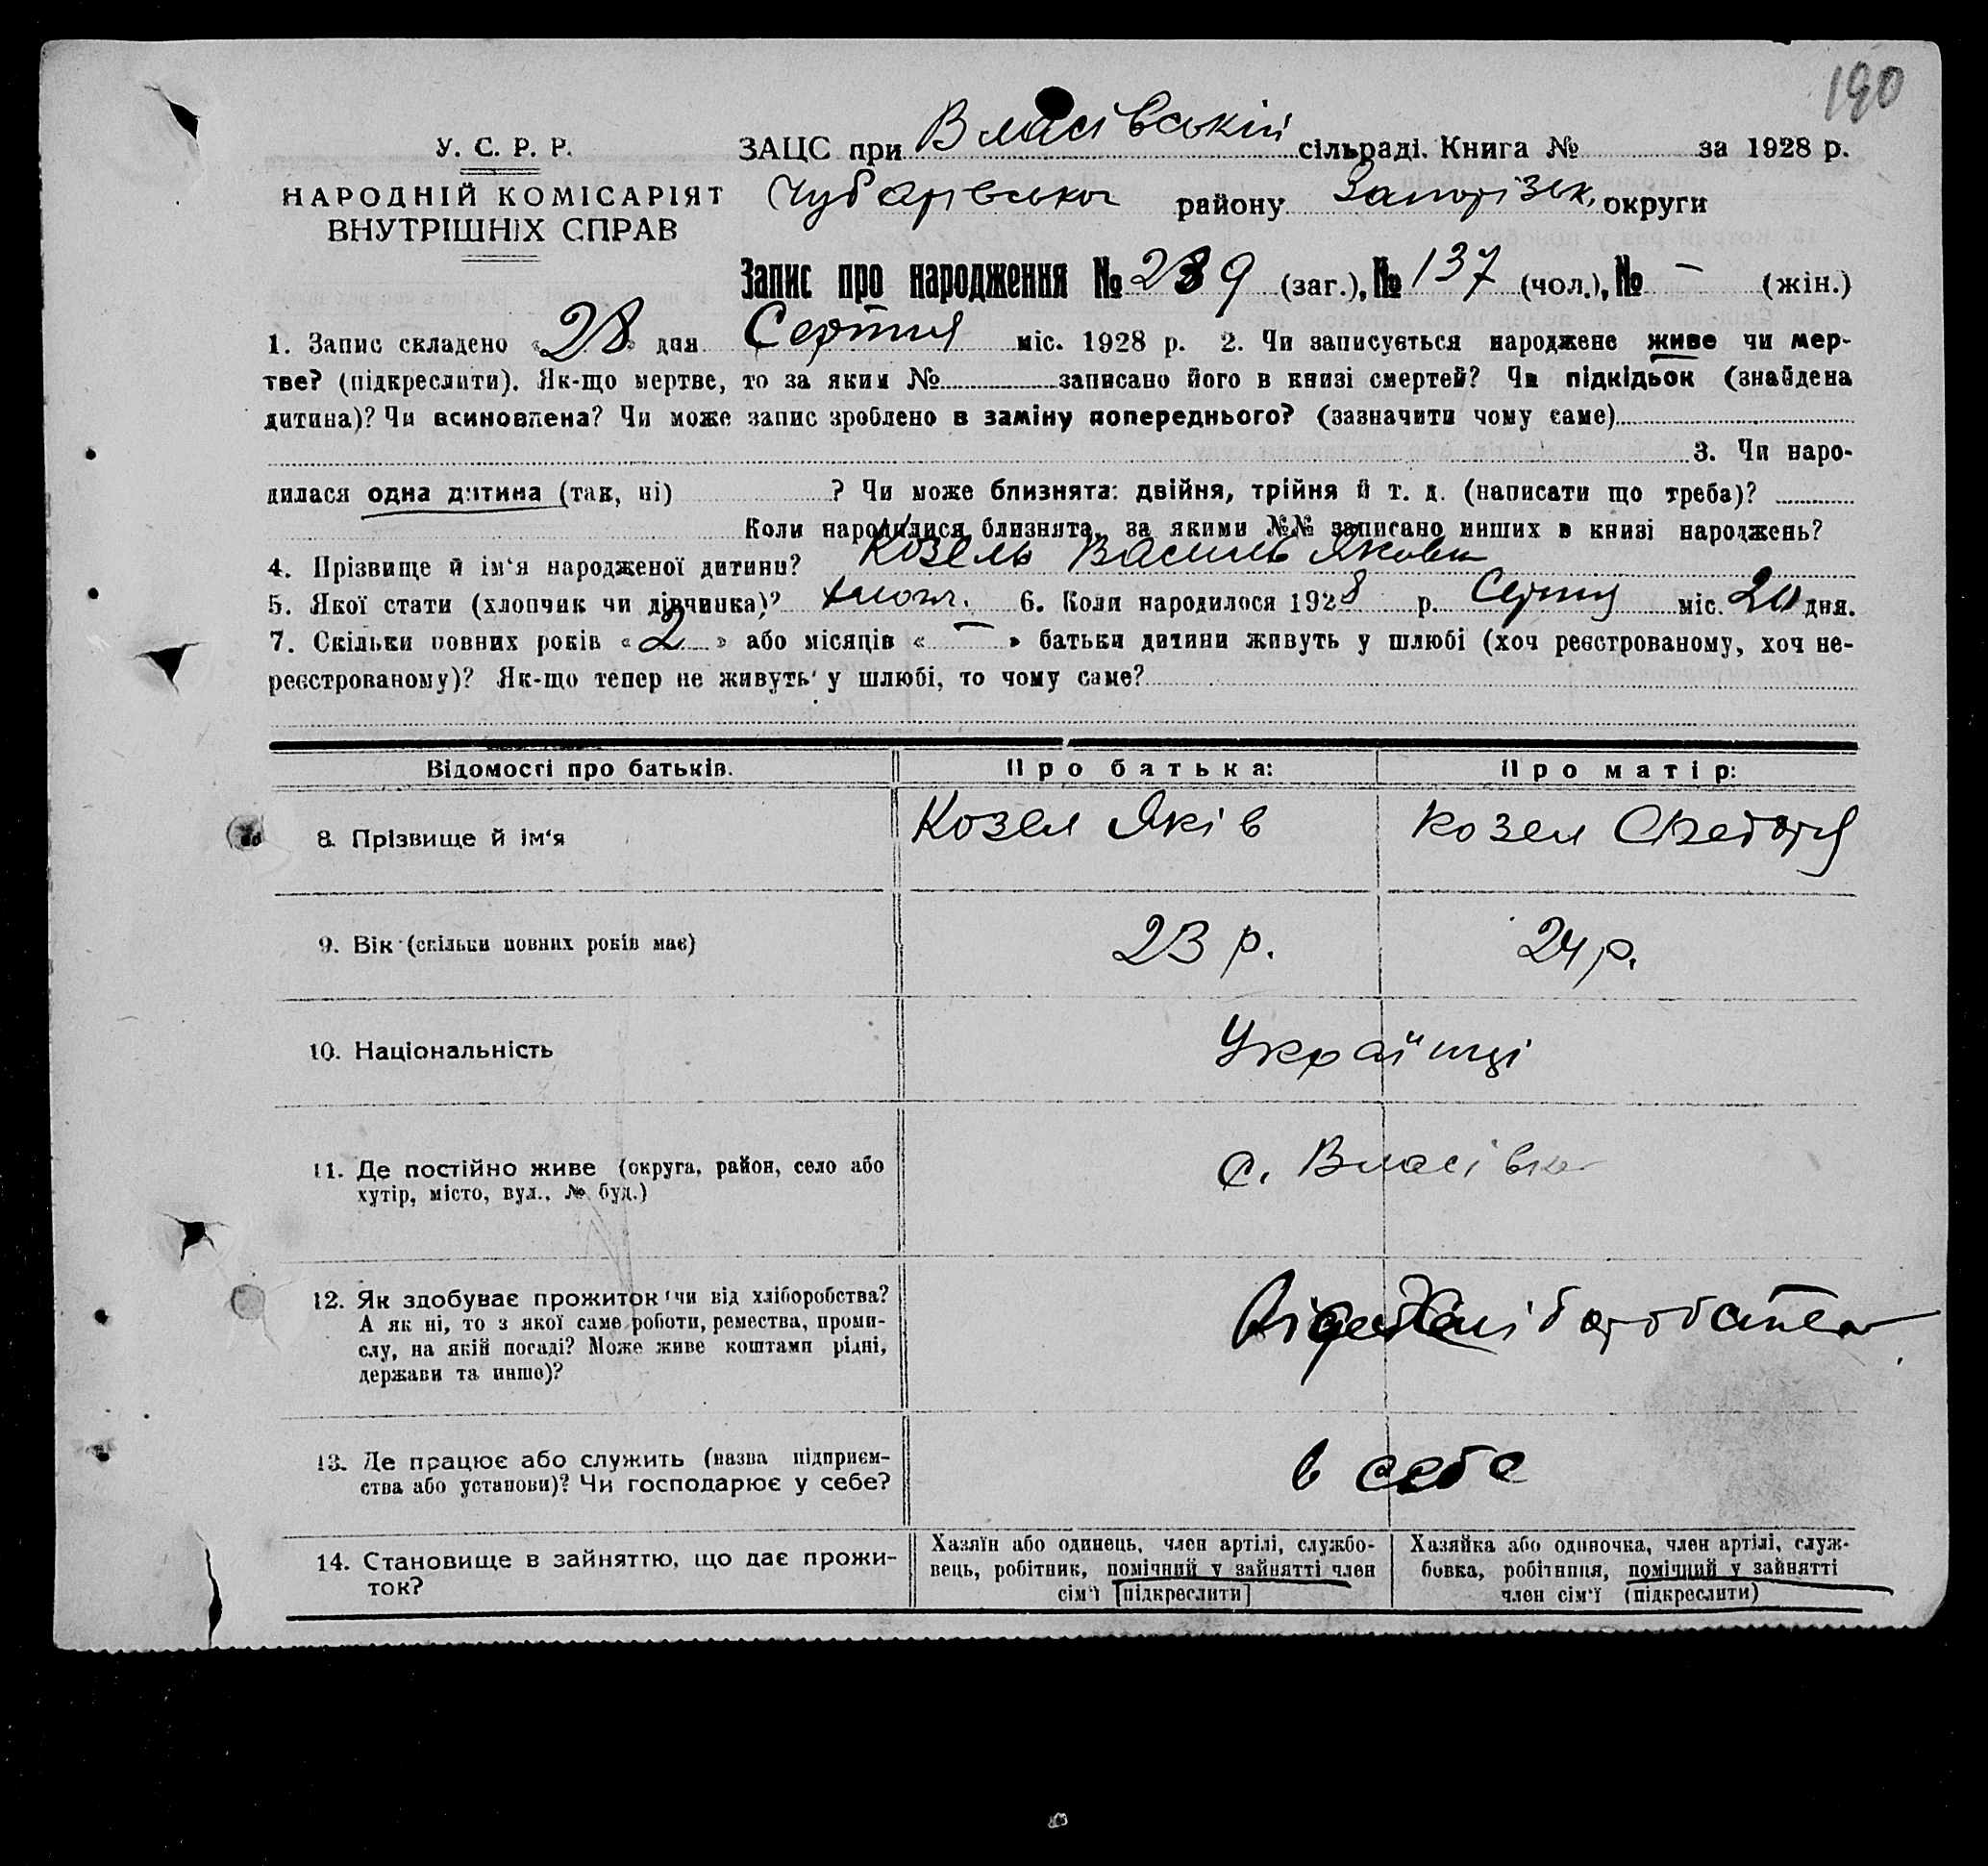 190
У. С. Р. Р.
НАРОДНІЙ КОМІСАРІЯТ
ВНУТРІШНІХ СПРАВ
ЗАЦС при Власівській сільраді. Книга № за 1928 р.
Чубарівського району Запорізьк. округи
Запис про народження № 239 (заг.), № 137 (чол.), № — (жін.)
1. Запис складено «28» дня Серпня міс. 1928 р. 2. Чи записується народжене живе чи мер-
тве? (підкреслити). Як-що мертве, то за яким № записано його в книзі смертей? Чи підкідьок (знайдена
дитина)? Чи всиновлена? Чи може запис зроблено в заміну попереднього? (зазначити чому саме)
3. Чи наро-
дилася одна дитина (так, ні) ? Чи може близнята: двійня, трійня й т. д. (написати що треба)?
Коли народилися близнята, за якими №№ записано инших в книзі народжень?
4. Прізвище й ім'я народженої дитини? Козель Василь Якович
5. Якої стати (хлопчик чи дівчинка)? хлопч. 6. Коли народилося 1928 р. Серпня міс. 20 дня.
7. Скільки повних років «2» або місяців «—» батьки дитини живуть у шлюбі (хоч реєстрованому, хоч не-
реєстрованому)? Як-що тепер не живуть у шлюбі, то чому саме?
Відомості про батьків. Про батька: Про матір:
8. Прізвище й ім'я Козел Яків Козел
9. Вік (скільки повних років має) 23 р. 24 р.
10. Національність Українці
11. Де постійно живе (округа, район, село або
хутір, місто, вул., № буд.) с. Власівка
12. Як здобуває прожиток чи від хліборобства?
А як ні, то з якої саме роботи, ремества, проми-
слу, на якій посаді? Може живе коштами рідні,
держави та инше)?
13. Де працює або служить (назва підприєм-
ства або установи)? Чи господарює у себе? в себе
14. Становище в зайняттю, що дає прожи-
ток?
Хазяїн або одинець, член артілі, службо-
вець, робітник, помічний у зайнятті член
сім'ї [підкреслити]
Хазяйка або одиночка, член артілі, служ-
бовка, робітниця, помічний у зайнятті
член сім'ї (підкреслити)